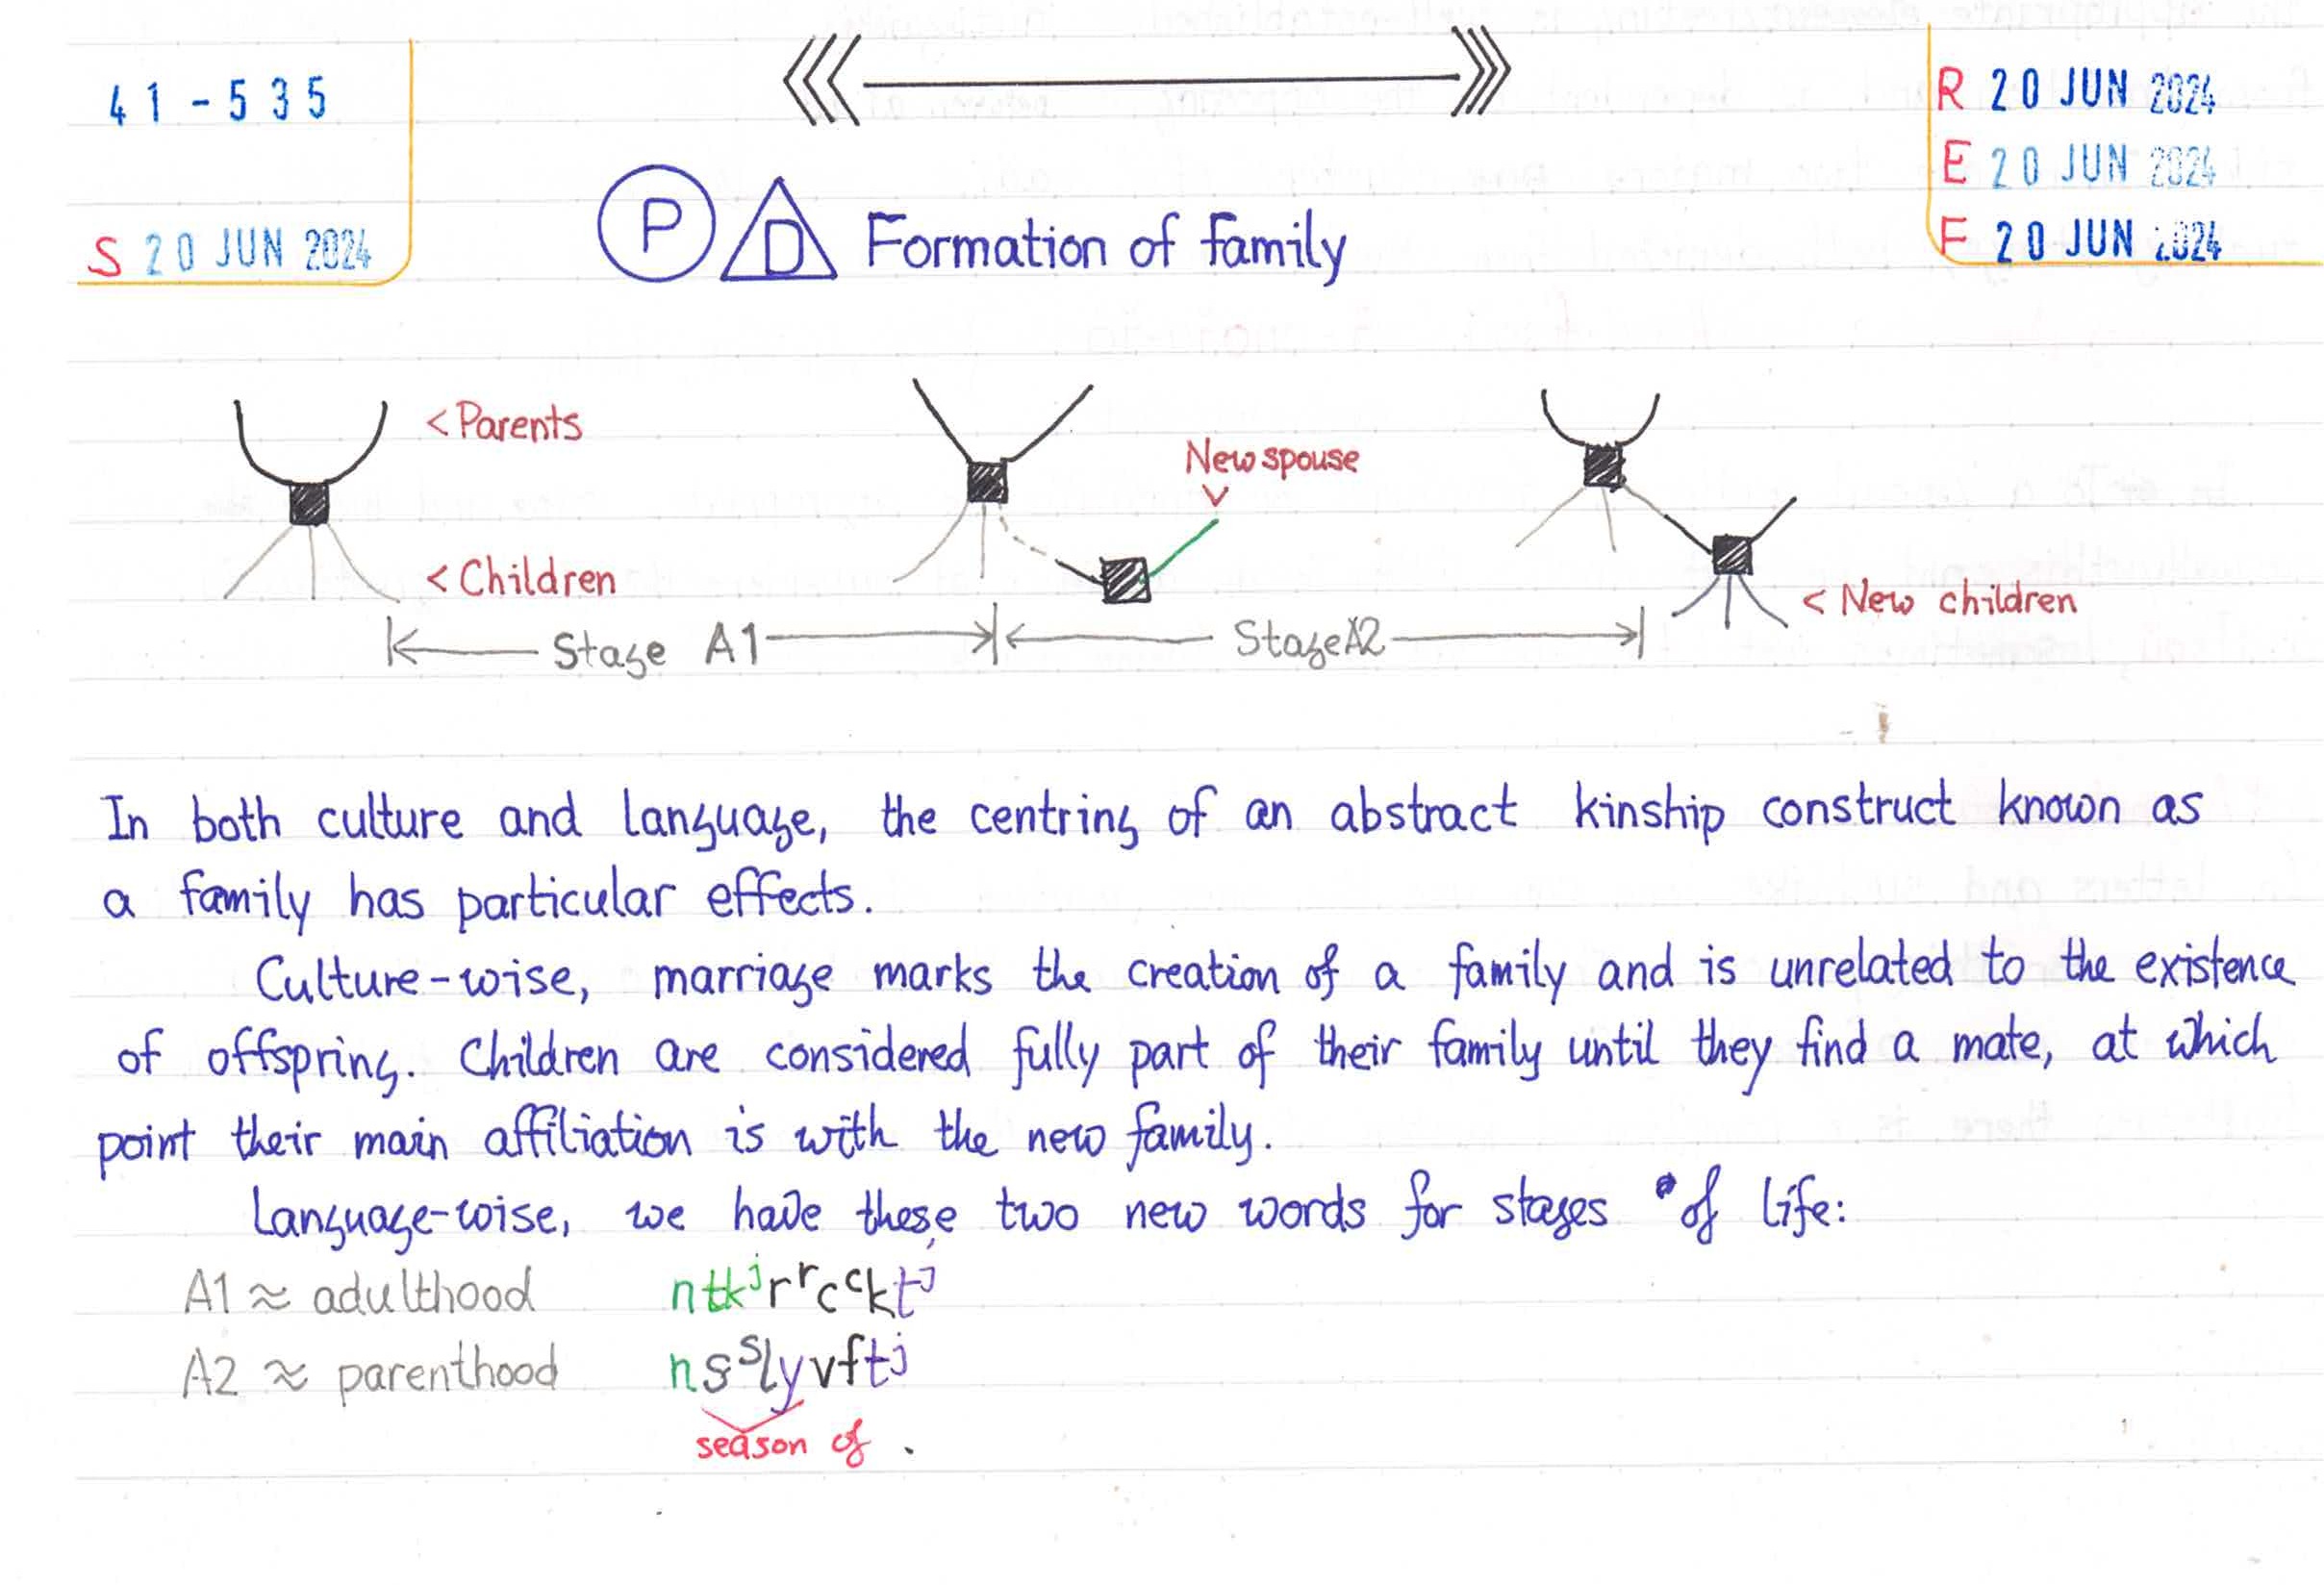 41-535
S 20 JUN 2024
R 20 JUN 2024
E 20 JUN 2024
F 20 JUN 2024
P D Formation of family
< Parents
< Children
New spouse
< New children
Stage A1
Stage A2
In both culture and language, the centring of an abstract kinship construct known as
a family has particular effects.
Culture-wise, marriage marks the creation of a family and is unrelated to the existence
of offspring. Children are considered fully part of their family until they find a mate, at which
point their main affiliation is with the new family.
Language-wise, we have these two new words for stages of life:
A1 ≈ adulthood nttkʲrʳcᶜktʲ
A2 ≈ parenthood nsˢlyvftʲ
season of .